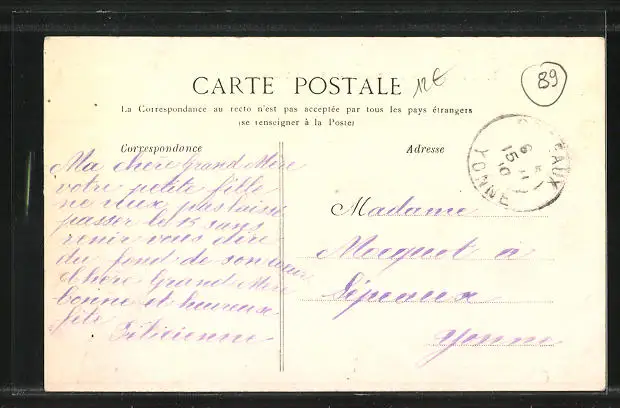 CARTE POSTALE 12€
89
La Correspondance au recto n'est pas acceptée par tous les pays étrangers
(se renseigner à la Poste)
Correspondance
Ma chère Grand Mère
votre petite fille
ne veux pas laissé
passer le 15 sans
venir vous dire
du fond de son cœur
chère Grand Mère
bonne et heureuse
fête
Félicienne
Adresse
Madame
Mocquot à
Sépeaux
Yonne
6
15
10
YONNE